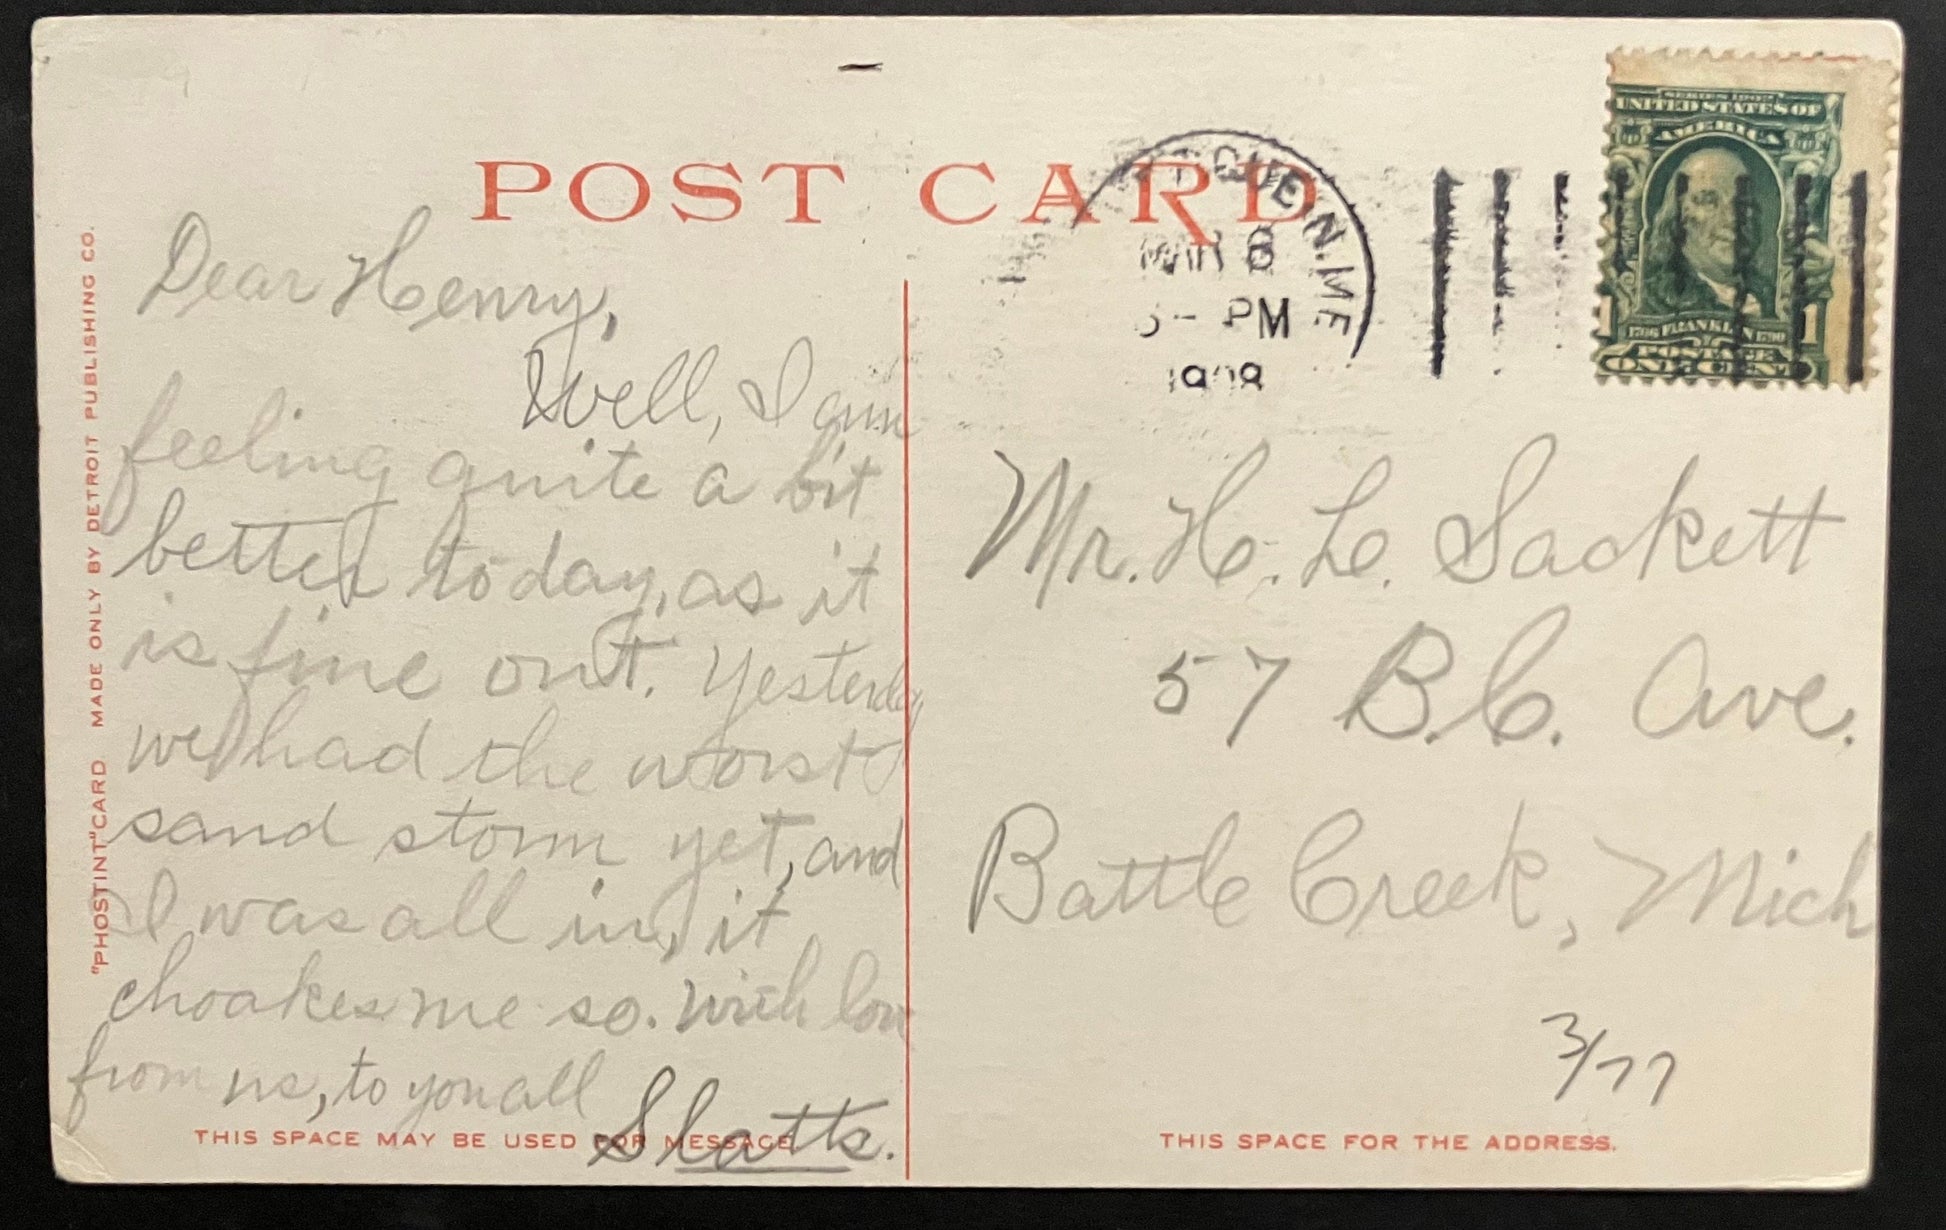 POST CARD
"PHOSTINT" CARD MADE ONLY BY DETROIT PUBLISHING CO.
Dear Henry,
Well, I am
feeling quite a bit
better today, as it
is fine out. Yesterday
we had the worst
sand storm yet, and
I was all in, it
choakes me so. With love
from us, to you all
Slatts.
THIS SPACE MAY BE USED FOR MESSAGE
N. ME
MAR 6
PM
1908
SERIES 1902
UNITED STATES OF
AMERICA
1706 FRANKLIN 1790
1 1
POSTAGE
ONE CENT
Mr. H. L. Sackett
57 B.C. Ave.
Battle Creek, Mich
3/77
THIS SPACE FOR THE ADDRESS.